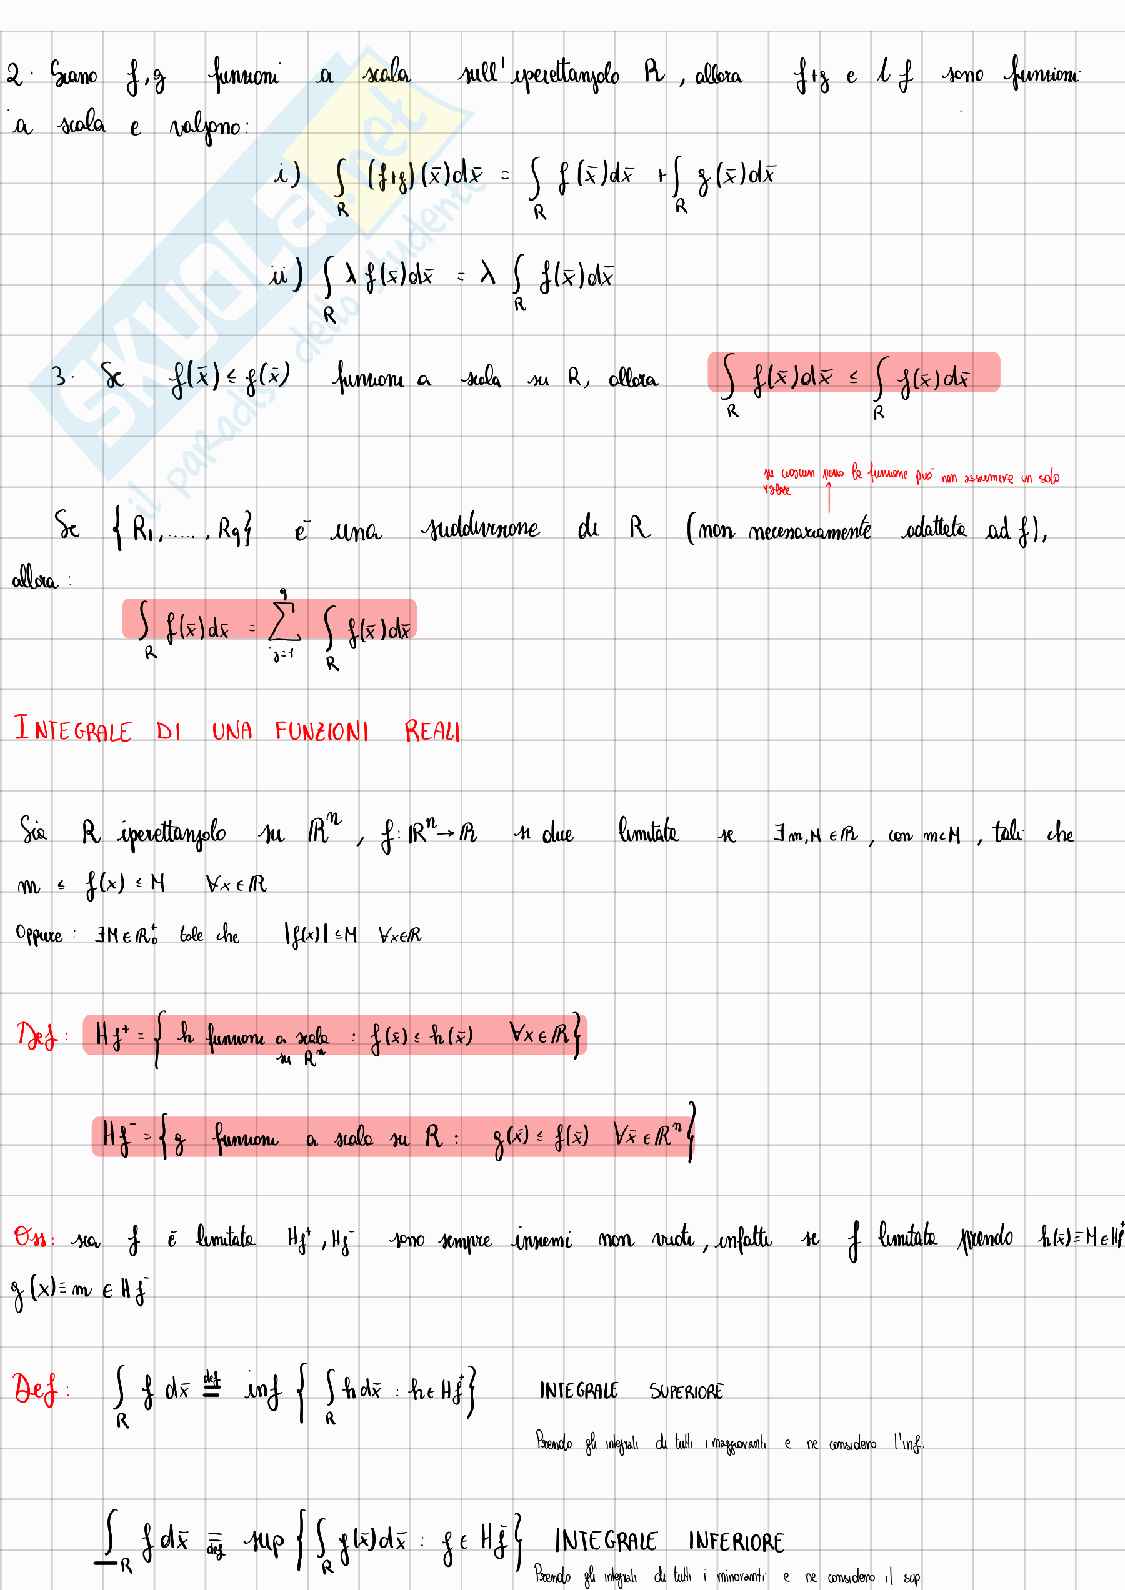 2. Siano f,g funzioni a scala sull'iperettangolo R, allora f+g e λ f sono funzioni
a scala e valgono:
i) ∫_R (f+g)(x̄)dx̄ = ∫_R f(x̄)dx̄ + ∫_R g(x̄)dx̄
ii) ∫_R λ f(x̄)dx̄ = λ ∫_R f(x̄)dx̄
3. Se f(x̄) ≤ g(x̄) funzioni a scala su R, allora ∫_R f(x̄)dx̄ ≤ ∫_R f(x̄)dx̄
su ciascun la funzione può non assumere un solo
valore
Se {R1,....., Rq} è una suddivisione di R (non necessariamente adattata ad f),
allora:
∫_R f(x̄)dx̄ = ∑_{j=1}^{q} ∫_R f(x̄)dx̄
INTEGRALE DI UNA FUNZIONI REALI
Sia R iperettangolo su ℝⁿ, f: ℝⁿ→ℝ si dice limitata se ∃m,M∈ℝ, con m<M, tali che
m ≤ f(x) ≤ M ∀x∈ℝ
Oppure: ∃M∈ℝ₀⁺ tale che |f(x)| ≤ M ∀x∈ℝ
Def: Hf⁺ = { h funzione a scala : f(x̄) ≤ h(x̄) ∀x∈ℝ }
su Rⁿ
Hf⁻ = { g funzione a scala su R : g(x̄) ≤ f(x̄) ∀x̄∈ℝⁿ }
Oss: sia f è limitata Hf⁺, Hf⁻ sono sempre insiemi non vuoti, infatti se f limitata prendo h(x̄)≡M∈Hf⁺
g(x)≡m ∈ Hf⁻
Def: ∫_R f dx̄ def= inf { ∫_R h dx̄ : h∈Hf⁺ } INTEGRALE SUPERIORE
Prendo gli integrali di tutti i maggioranti e ne considero l'inf.
∫_R f dx̄ =def sup { ∫_R g(x̄)dx̄ : g∈Hf⁻ } INTEGRALE INFERIORE
Prendo gli integrali di tutti i minoranti e ne considero il sup
SKUOLA.net
il paradiso dello studente